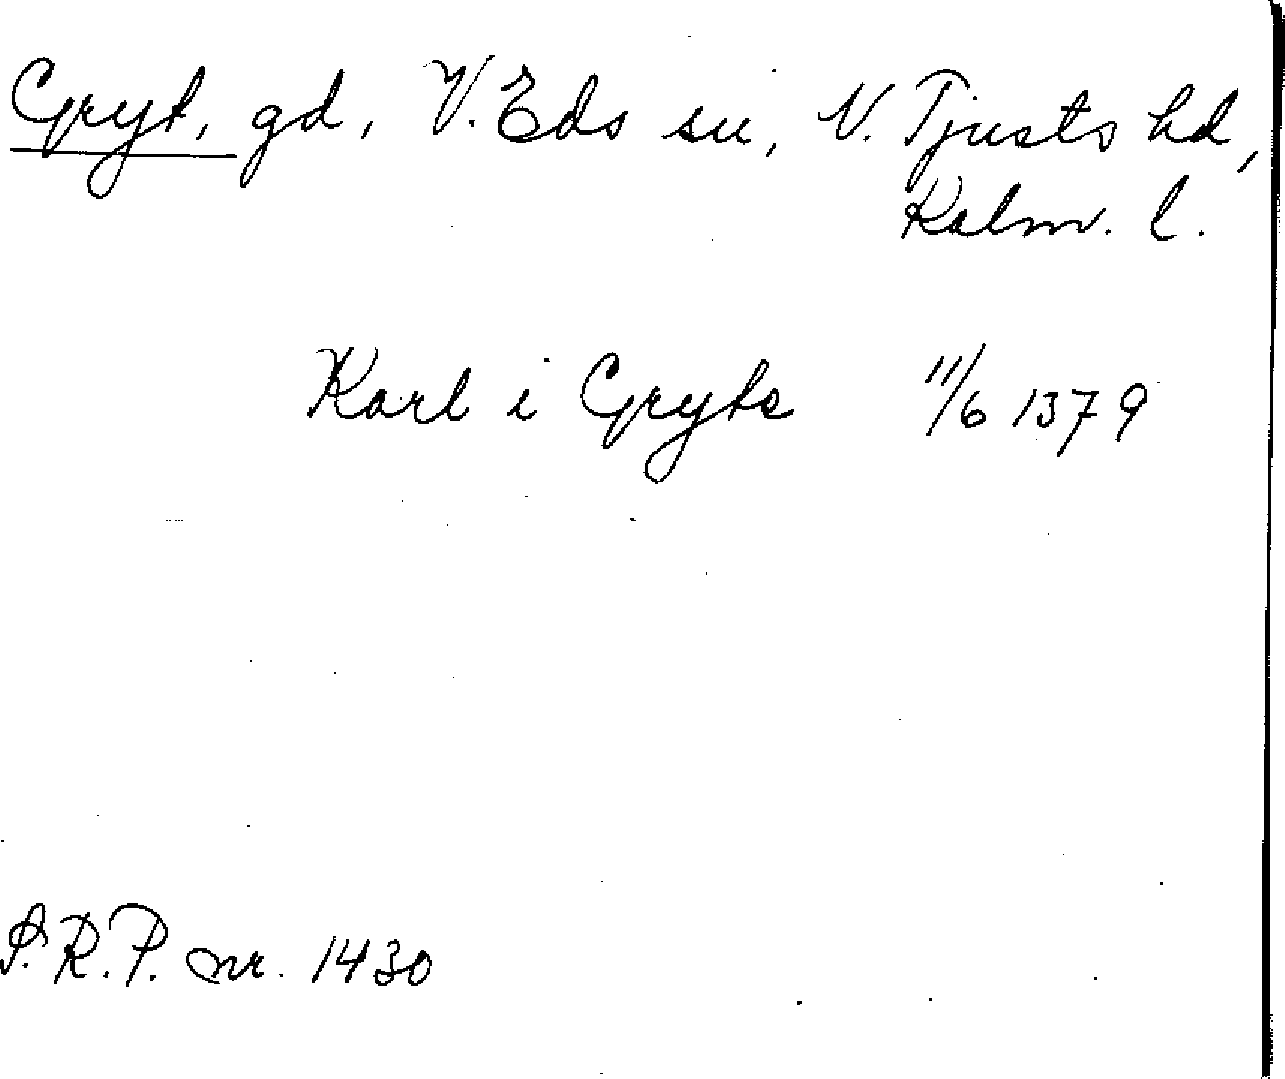 Gryt, gd, V. Eds sn, N. Tjusts hd,
Kalm. l.
Karl i Gryte 11/6 1379
S.R.P. nr. 1430